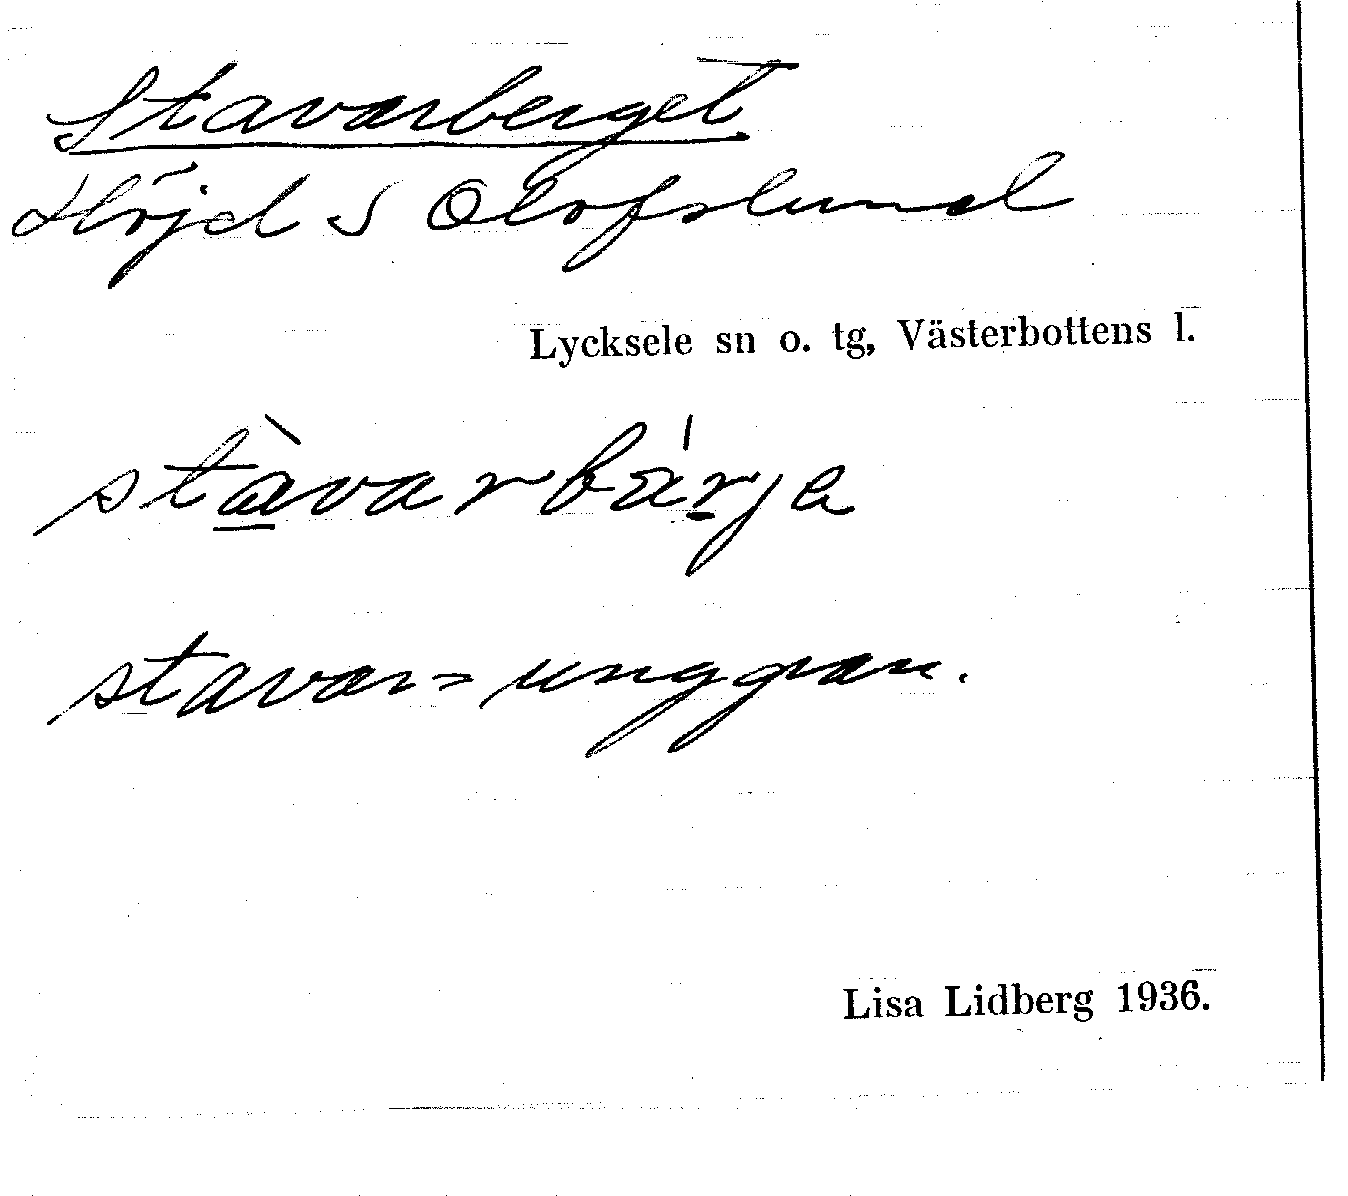 Stavarberget
Höjd S Olofslund
Lycksele sn o. tg, Västerbottens l.
stàvarbárja
stavar = unggran.
Lisa Lidberg 1936.